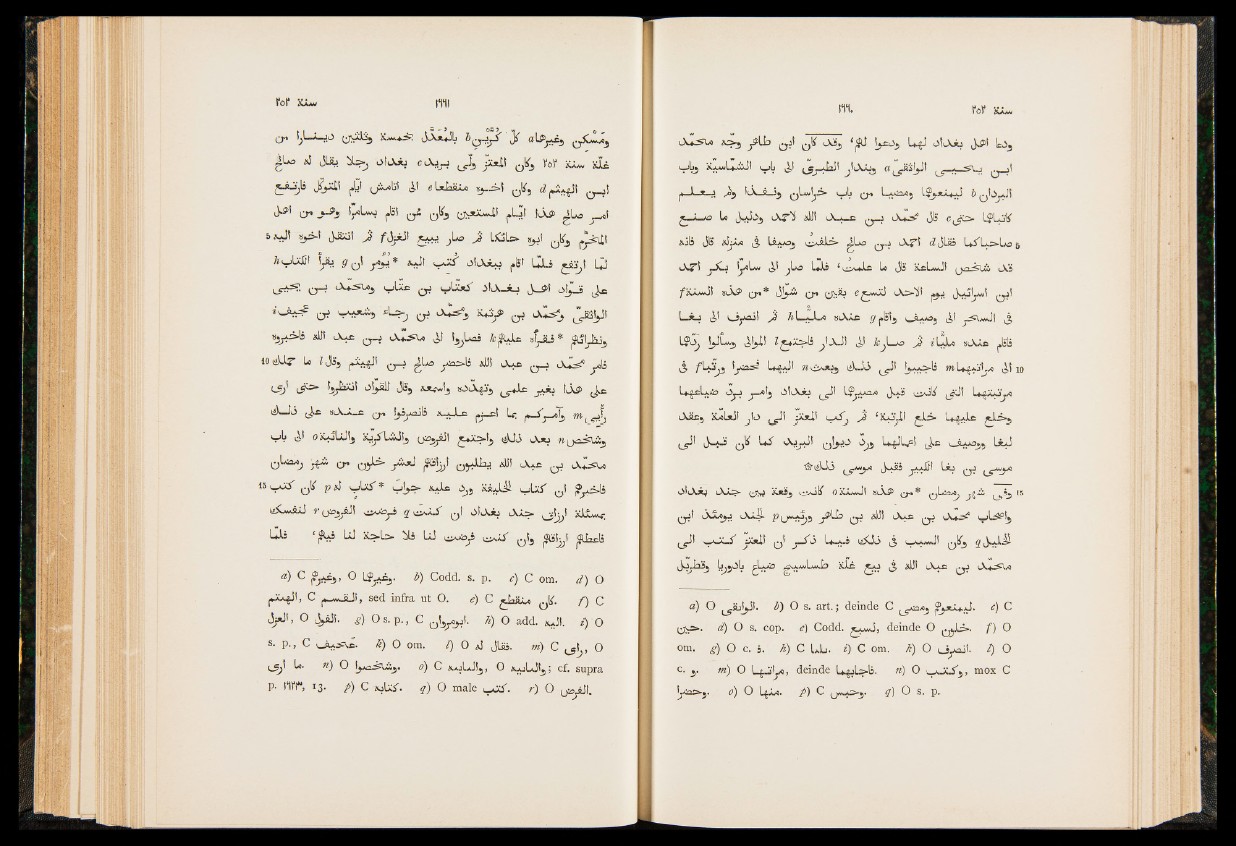 سنة ٢٥٢ ١٦٦٠
ودعا اهل بغداد لهما ودعوا لهم، وقد كان ابن طاهر وجّه محمّد
ابن يحيى الواثقى a وبندار الطبرى الى باب الشمّاسيّة وباب
البردان b ليمنعوهما ومضيا من باب خراسان ونفذا ولم يعلم
كاتباها حتى c قال محمّد بن عبد الله لاحمد ودليل ما صنع
5 صاحباكما فقال d احمد بن صالح خلفتُ وصيفا فى منزله قال فانه
قد شخص الساعة قال ما علمتُ، فلمّا صار الى سامرّا بكر احمد
ابن اسرائيل يوم الاحد لتسع e بقين من شوّال *من هذه السنة f
فى السحر الى وصيف واقام g عنده مليّا h ثم انصرف الى بغا
فاقام عنده مليّا i ثم صار k الى الدار فاجتمع l الموالى وسألوا ردّها
10 الى مراتبهما m فاجيبوا الى ذلك وبعث n اليهما فحضرا ورتّبا f فى
مرتبتهما التى كانت قبل مصيرها الى بغداد وامر بردّ ضياعهما
وخلع عليهما خلع المرتبة، ثم ركب المعتزّ الى دار العامّة وعقد
لبغا ووصيف على اعمالهما وردّ ديوان البريد كما كان قبل الى
موسى بن بغا الكبير فقبل موسى ذلك
15 وفى شهر رمضان *من هذه السنة o كانت وقعة بين جند بغداد
واصحاب محمّد بن عبد الله بن طاهر ورئيس p الجند يومئذ ابن
الخليل q وكان السبب فى ذلك فيما ذكر ان المعتزّ كتب الى
محمّد بن عبد الله فى بيع غلّة طساسيج ضياع بادوريا وقطربّل
a) O الوابقى. b) O s. art.; deinde C ليمنعوهم ومضى. c) C
حين. d) O s. cop. e) Codd. لسبع, deinde O خلون. f) O
om. g) O c. ف. h) C لما. i) C om. k) O انصرف. l) O
c. و. m) O مراتبها, deinde فاجابهما. n) O وكتب, mox C
وحضرا. o) O منها. p) C وحبس. q) O s. p.
١٦٦١ سنة ٢٥٢
ومَسْكِن وغيرها a كلّ كُرَّيْن b بالمُعَدَّل بخمسة وثلثين دينارا من
غلّة سنة ٢٥٢ وكان المعتزّ ولّى بريد c بغداد رجلا يقال له صالح
ابن الهيثم d وكان اخوه منقطعا e الى اتامش ايّام المتوكّل فارتفع
امر صالح هذا ايّام المستعين وكان ممن اقام بسامرّا وهو من اهل
5 المخرّم وكان ابوه حائكا ثم صار يبيع الغزل f ثم انتقل اخوه اليه
لما ارتفع فلمّا اقام ببغداد كُتب اليه *يُؤمر ان g يقرأ الكتاب h
على قوّاد اهل بغداد كعتّاب بن عتّاب ومحمّد بن يحيى
الواثقىّ ومحمّد بن هرثمة ومحمّد بن رجاء وشعيب بن عجيف i
ونظرائهم *فقرأه عليهم k فصاروا الى محمّد بن عبد الله فاخبروه
10 فامر محمّد بن عبد الله فاحضر صالح بن الهيثم وقال l ما حملك
على هذا بغير علمى وتهدّده واسمعه وقال للقوّاد انتظروا حتى ارى
رأيى m وآمركم بما اعزم عليه فانصرفوا من عنده على ذلك
وشخص n بعد ذلك واجتمع الفروض والشاكريّة والنائبة o الى باب
محمّد بن عبد الله يطلبون ارزاقهم لعشر خلون من شهر رمضان
15 فاخبرهم ان كتاب الخليفة ورد عليه جواب *كتاب له p كان كتب
بمسئلة ارزاق جند بغداد ان كنت q فرضت الفروض r لنفسك
فاعطهم ارزاقهم وان كنت فرضت لنا فلا حاجة لنا فيهم، فلمّا
a) C وغيرهم, O وغيرها. b) Codd. s. p. c) C om. d) O
الهيتم, C القسم, sed infra ut O. e) C كان منقطع. f) C
العزل, O القول. g) O s. p., C ابويروان. h) O add. اليه. i) O
s. p., C عحيف. k) O om. l) O فقال له. m) C راى, O
ما ارى. n) O وشخصوا. o) C والمابه, O والنابيه; cf. supra
p. ١٦٢٣, 13. p) C كتابه. q) O male كتب. r) O الفرض.